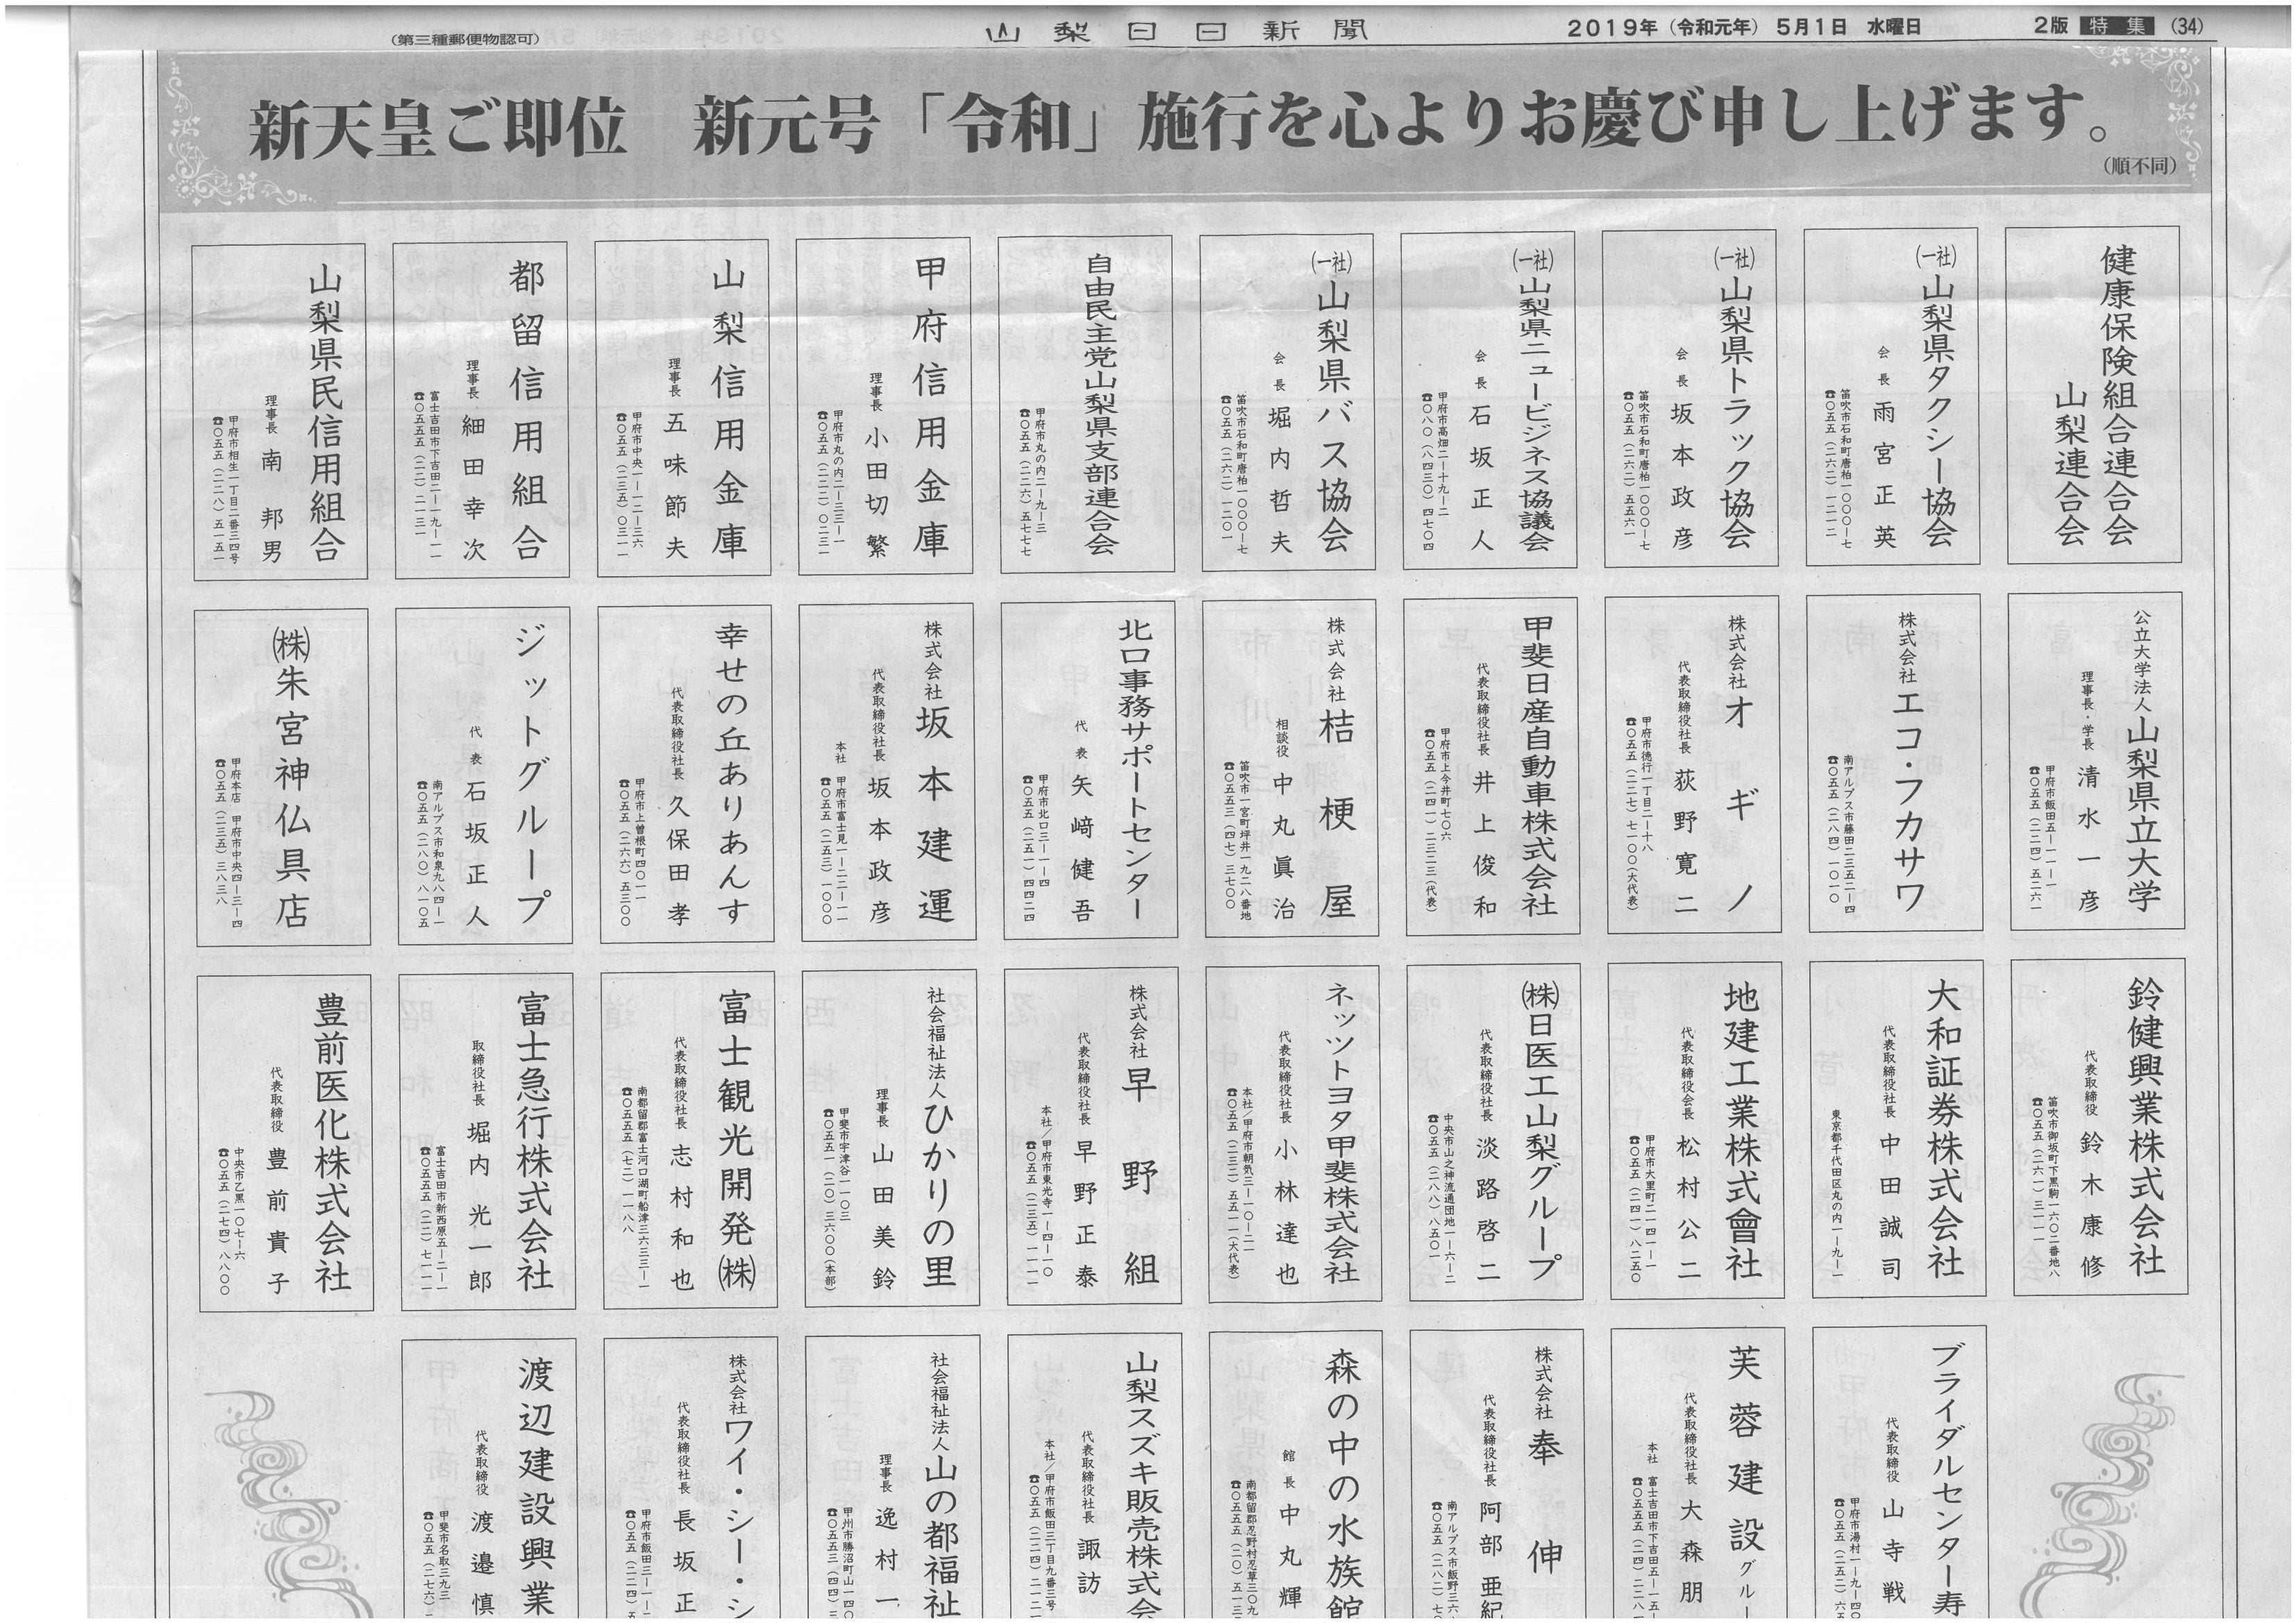 （第三種郵便物認可）
山梨日日新聞
2019年（令和元年）5月1日 水曜日
2版 特集 (34)
新天皇ご即位　新元号「令和」施行を心よりお慶び申し上げます。
（順不同）
健康保険組合連合会
山梨連合会
（一社）山梨県タクシー協会
会長 雨宮正英
笛吹市石和町唐柏一〇〇〇ー七
☎〇五五（二六二）一二一二
（一社）山梨県トラック協会
会長 坂本政彦
笛吹市石和町唐柏一〇〇〇ー七
☎〇五五（二六二）五五六一
（一社）山梨県ニュービジネス協議会
会長 石坂正人
甲府市高畑二ー十九ー二
☎〇八〇（八四三〇）四七〇四
（一社）山梨県バス協会
会長 堀内哲夫
笛吹市石和町唐柏一〇〇〇ー七
☎〇五五（二六二）一二〇一
自由民主党山梨県支部連合会
甲府市丸の内二ー九ー三
☎〇五五（二二六）五七七七
甲府信用金庫
理事長 小田切繁
甲府市丸の内二ー三三ー一
☎〇五五（二二二）〇二三一
山梨信用金庫
理事長 五味節夫
甲府市中央一ー一二ー三六
☎〇五五（二三五）〇三一一
都留信用組合
理事長 細田幸次
富士吉田市下吉田二ー一九ー一一
☎〇五五五（二二）二一三一
山梨県民信用組合
理事長 南邦男
甲府市相生一丁目二番三四号
☎〇五五（二二八）五一五一
公立大学法人 山梨県立大学
理事長・学長 清水一彦
甲府市飯田五ー一一ー一
☎〇五五（二二四）五二六一
株式会社 エコ・フカサワ
南アルプス市藤田二三五二ー四
☎〇五五（二八四）一〇一〇
株式会社 オギノ
代表取締役社長 荻野寛二
甲府市徳行一丁目二ー十八
☎〇五五（二二七）七一〇〇（大代表）
甲斐日産自動車株式会社
代表取締役社長 井上俊和
甲府市上今井町七〇六
☎〇五五（二四一）二三二三（代表）
株式会社 桔梗屋
相談役 中丸眞治
笛吹市一宮町坪井一九二八番地
☎〇五五三（四七）三七〇〇
北口事務サポートセンター
代表 矢﨑健吾
甲府市北口三ー一ー四
☎〇五五（二五一）四四二四
株式会社 坂本建運
代表取締役社長 坂本政彦
本社 甲府市富士見一ー二二ー一一
☎〇五五（二五三）一〇〇〇
幸せの丘ありあんす
代表取締役社長 久保田孝
甲府市上曽根町四〇一一
☎〇五五（二六六）五三〇〇
ジットグループ
代表 石坂正人
南アルプス市和泉九八四ー一
☎〇五五（二八〇）八一〇五
㈱朱宮神仏具店
甲府本店 甲府市中央四ー三ー四
☎〇五五（二三五）三八三八
鈴健興業株式会社
代表取締役 鈴木康修
笛吹市御坂町下黒駒一六〇二番地八
☎〇五五（二六一）三一一一
大和証券株式会社
代表取締役社長 中田誠司
東京都千代田区丸の内一ー九ー一
地建工業株式會社
代表取締役会長 松村公二
甲府市大里町二一四一ー一
☎〇五五（二四一）八二五〇
㈱日医工山梨グループ
代表取締役社長 淡路啓二
中央市山之神流通団地一ー六ー二
☎〇五五（二八八）八五〇一
ネッツトヨタ甲斐株式会社
代表取締役社長 小林達也
本社／甲府市朝気三ー一〇ー二一
☎〇五五（二三二）五五一一（大代表）
株式会社 早野組
代表取締役社長 早野正泰
本社／甲府市東光寺一ー四ー一〇
☎〇五五（二三五）一一一一
社会福祉法人 ひかりの里
理事長 山田美鈴
甲斐市宇津谷一一〇三
☎〇五五一（二〇）三六〇〇（本部）
富士観光開発㈱
代表取締役社長 志村和也
南都留郡富士河口湖町船津三六三三ー一
☎〇五五五（七二）一一八八
富士急行株式会社
取締役社長 堀内光一郎
富士吉田市新西原五ー二ー一
☎〇五五五（二二）七一一一
豊前医化株式会社
代表取締役 豊前貴子
中央市乙黒一〇七ー六
☎〇五五（二七四）八八〇〇
ブライダルセンター寿
代表取締役 山寺戦
甲府市湯村一ー九ー四〇
☎〇五五（二五二）六五
芙蓉建設グルー
代表取締役社長 大森朋
本社 富士吉田市下吉田五ー一五ー
☎〇五五五（二四）二二八
株式会社 奉伸
代表取締役社長 阿部亜紀
南アルプス市飯野三六八
☎〇五五（二八二）七〇
森の中の水族館
館長 中丸輝
南都留郡忍野村忍草三〇九
☎〇五五五（二〇）五一三
山梨スズキ販売株式会
代表取締役社長 諏訪
本社／甲府市飯田三丁目九番三号
☎〇五五（二二四）二一二
社会福祉法人 山の都福祉
理事長 逸村一
甲州市勝沼町山一四〇
☎〇五五三（四四）三
株式会社 ワイ・シー・シ
代表取締役社長 長坂正
甲府市飯田三ー一ー
☎〇五五（二二四）五
渡辺建設興業
代表取締役 渡邉慎
甲斐市名取三九三
☎〇五五（二七六）